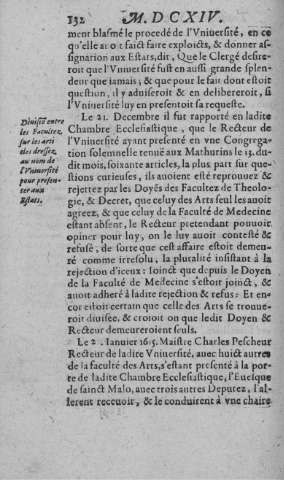 132 M. DCXIV.
ment blasmé le procedé de l'Vniuersité, en ce
qu'elle auoit faict faire exploicts, & donner as-
signation aux Estats, dit, Que le Clergé desire-
roit que l'Vniuersité fust en aussi grande splen-
deur que iamais, & que pour le fait dont estoit
question, il y aduiseroit & en delibereroit, si
l'Vniuersité luy en presentoit sa requeste.
Diuisiõ entre
les Facultez,
sur les arti
cles dressez,
au nom de
l'Vniuersité
pour presen-
ter aux
Estats.
Le 21. Decembre il fut rapporté en ladite
Chambre Ecclesiastique, que le Recteur de
l'Vniuersité ayant presenté en vne Congrega-
tion solemnelle tenuë aux Mathurins le 13. du-
dit mois, soixante articles, la plus part sur que-
stions curieuses, ils auoient esté reprouuez &
rejettez par les Doyẽs des Facultez de Theolo-
gie, & Decret, que celuy des Arts seul les auoit
agreez, & que celuy de la Faculté de Medecine
estant absent, le Recteur pretendant pouuoir
opiner pour luy, on le luy auoit contesté &
refusé, de sorte que cest affaire estoit demeu-
ré comme irresolu, la pluralité insistant à la
rejection d'iceux: Ioinct que depuis le Doyen
de la Faculté de Medecine s'estoit joinct, &
auoit adheré à ladite rejection & refus: Et en-
cor estoit certain que celle des Arts se trouue-
roit diuisée, & croioit on que ledit Doyen &
Recteur demeureroient seuls.
Le 2. Ianuier 1615. Maistre Charles Pescheur
Recteur de ladite Vniuersité, auec huict autres
de la faculté des Arts, s'estant presenté à la por-
te de ladite Chambre Ecclesiastique, l'Euesque
de sainct Malo, auec trois autres Deputez, l'al-
lerent receuoir, & le conduirent à vne chaire